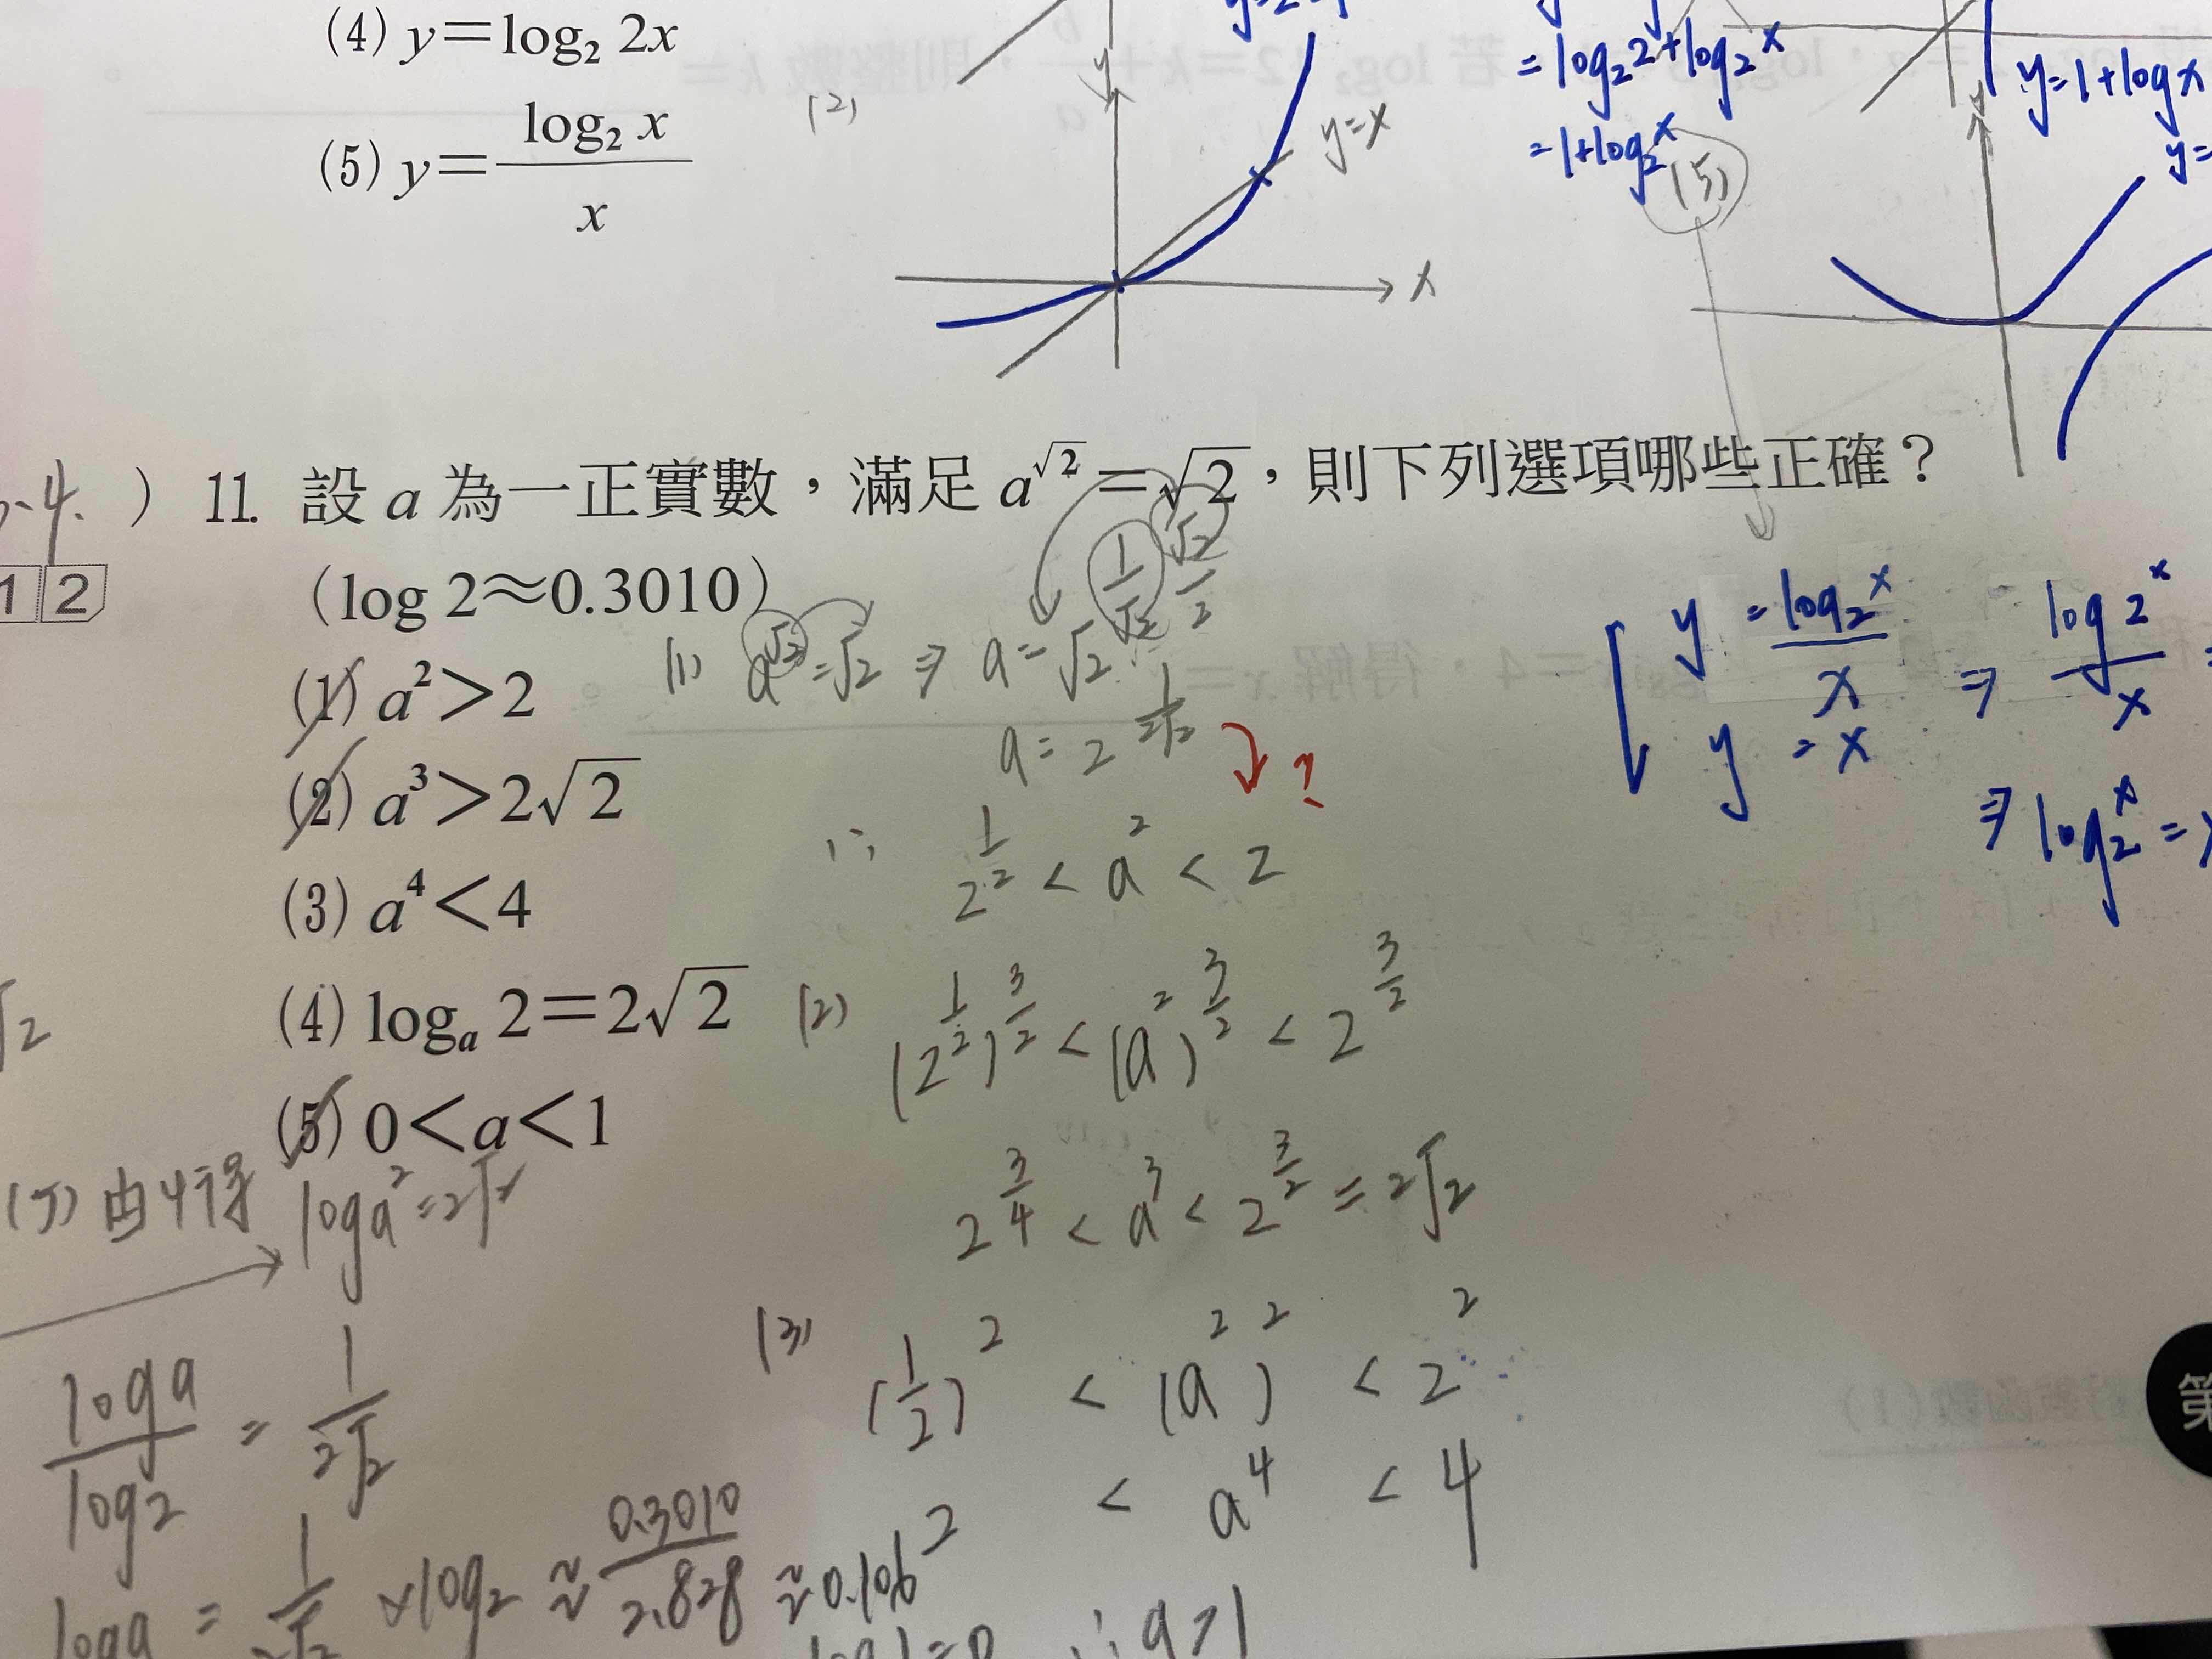 (4) y=log₂ 2x
(5) y=log₂ x / x
(2)
y
y=x
x
= log₂2+log₂x
= 1+log₂x
(5)
y=1+logx
y=
) 11. 設 a 為一正實數，滿足 a^√2=√2，則下列選項哪些正確？
(log 2≈0.3010)
(1) a²>2
(2) a³>2√2
(3) a⁴<4
(4) logₐ 2=2√2
(5) 0<a<1
1 2
(1) a^√2=√2 ⇒ a=√2^(1/√2)
√2/2
a=2^(1/2√2)
?
∴ 2^(1/2) < a² < 2
(2) (2^(1/2))^(3/2) < (a²)^(3/2) < 2^(3/2)
2^(3/4) < a³ < 2^(3/2) = 2√2
(3) (1/2)² < (a²)² < 2²
2 < a⁴ < 4
y = log₂x / x ⇒ log₂x / x
y = x
⇒ log₂x =
√2
(5) 由4得 logₐ2=2√2
log a / log 2 = 1 / 2√2
log a = 1 / 2√2 × log2 ≈ 0.3010 / 2.828 ≈ 0.106
∴ a>1
第